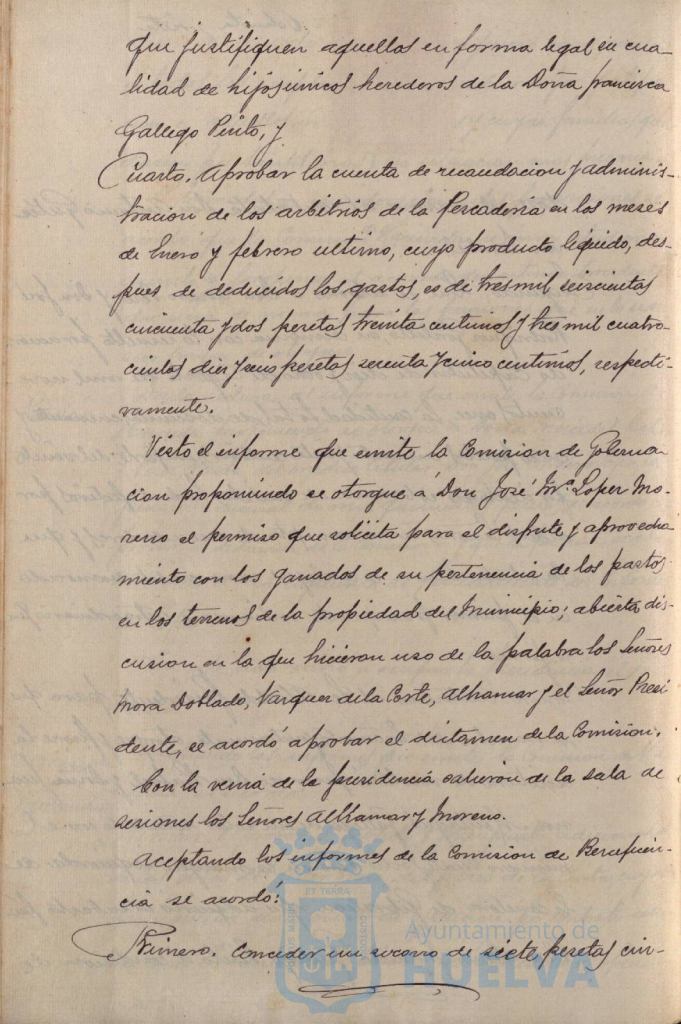 que justifiquen aquellas en forma legal su cua-
lidad de hijos únicos herederos de la Doña francisca
Gallego Pinto, y
Cuarto. Aprobar la cuenta de recaudacion y adminis-
tracion de los arbitrios de la Pescaderia en los meses
de Enero y febrero ultimo, cuyo producto líquido, des-
pues de deducidos los gastos, es de tres mil seiscientas
cincuenta y dos pesetas treinta centimos y tres mil cuatro-
cientas diez y seis pesetas setenta y cinco centimos, respecti-
vamente.
Visto el informe que emite la Comision de Goberna-
cion proponiendo se otorgue á Don José Mª Lopez Mo-
reno el permiso que solicita para el disfrute y aprovecha
miento con los ganados de su pertenencia de los pastos
en los terrenos de la propiedad del Municipio; abierta dis-
cusion en la que hicieron uso de la palabra los Señores
Mora Doblado, Vazquez de la Corte, Alkamar y el Señor Presi
dente, se acordó aprobar el dictamen de la Comision.
Con la venia de la presidencia salieron de la sala de
sesiones los Señores Alkamar y Moreno.
Aceptando los informes de la Comision de Beneficen-
cia se acordó:
Primero. Conceder un socorro de siete pesetas cin-
Ayuntamiento de
HUELVA